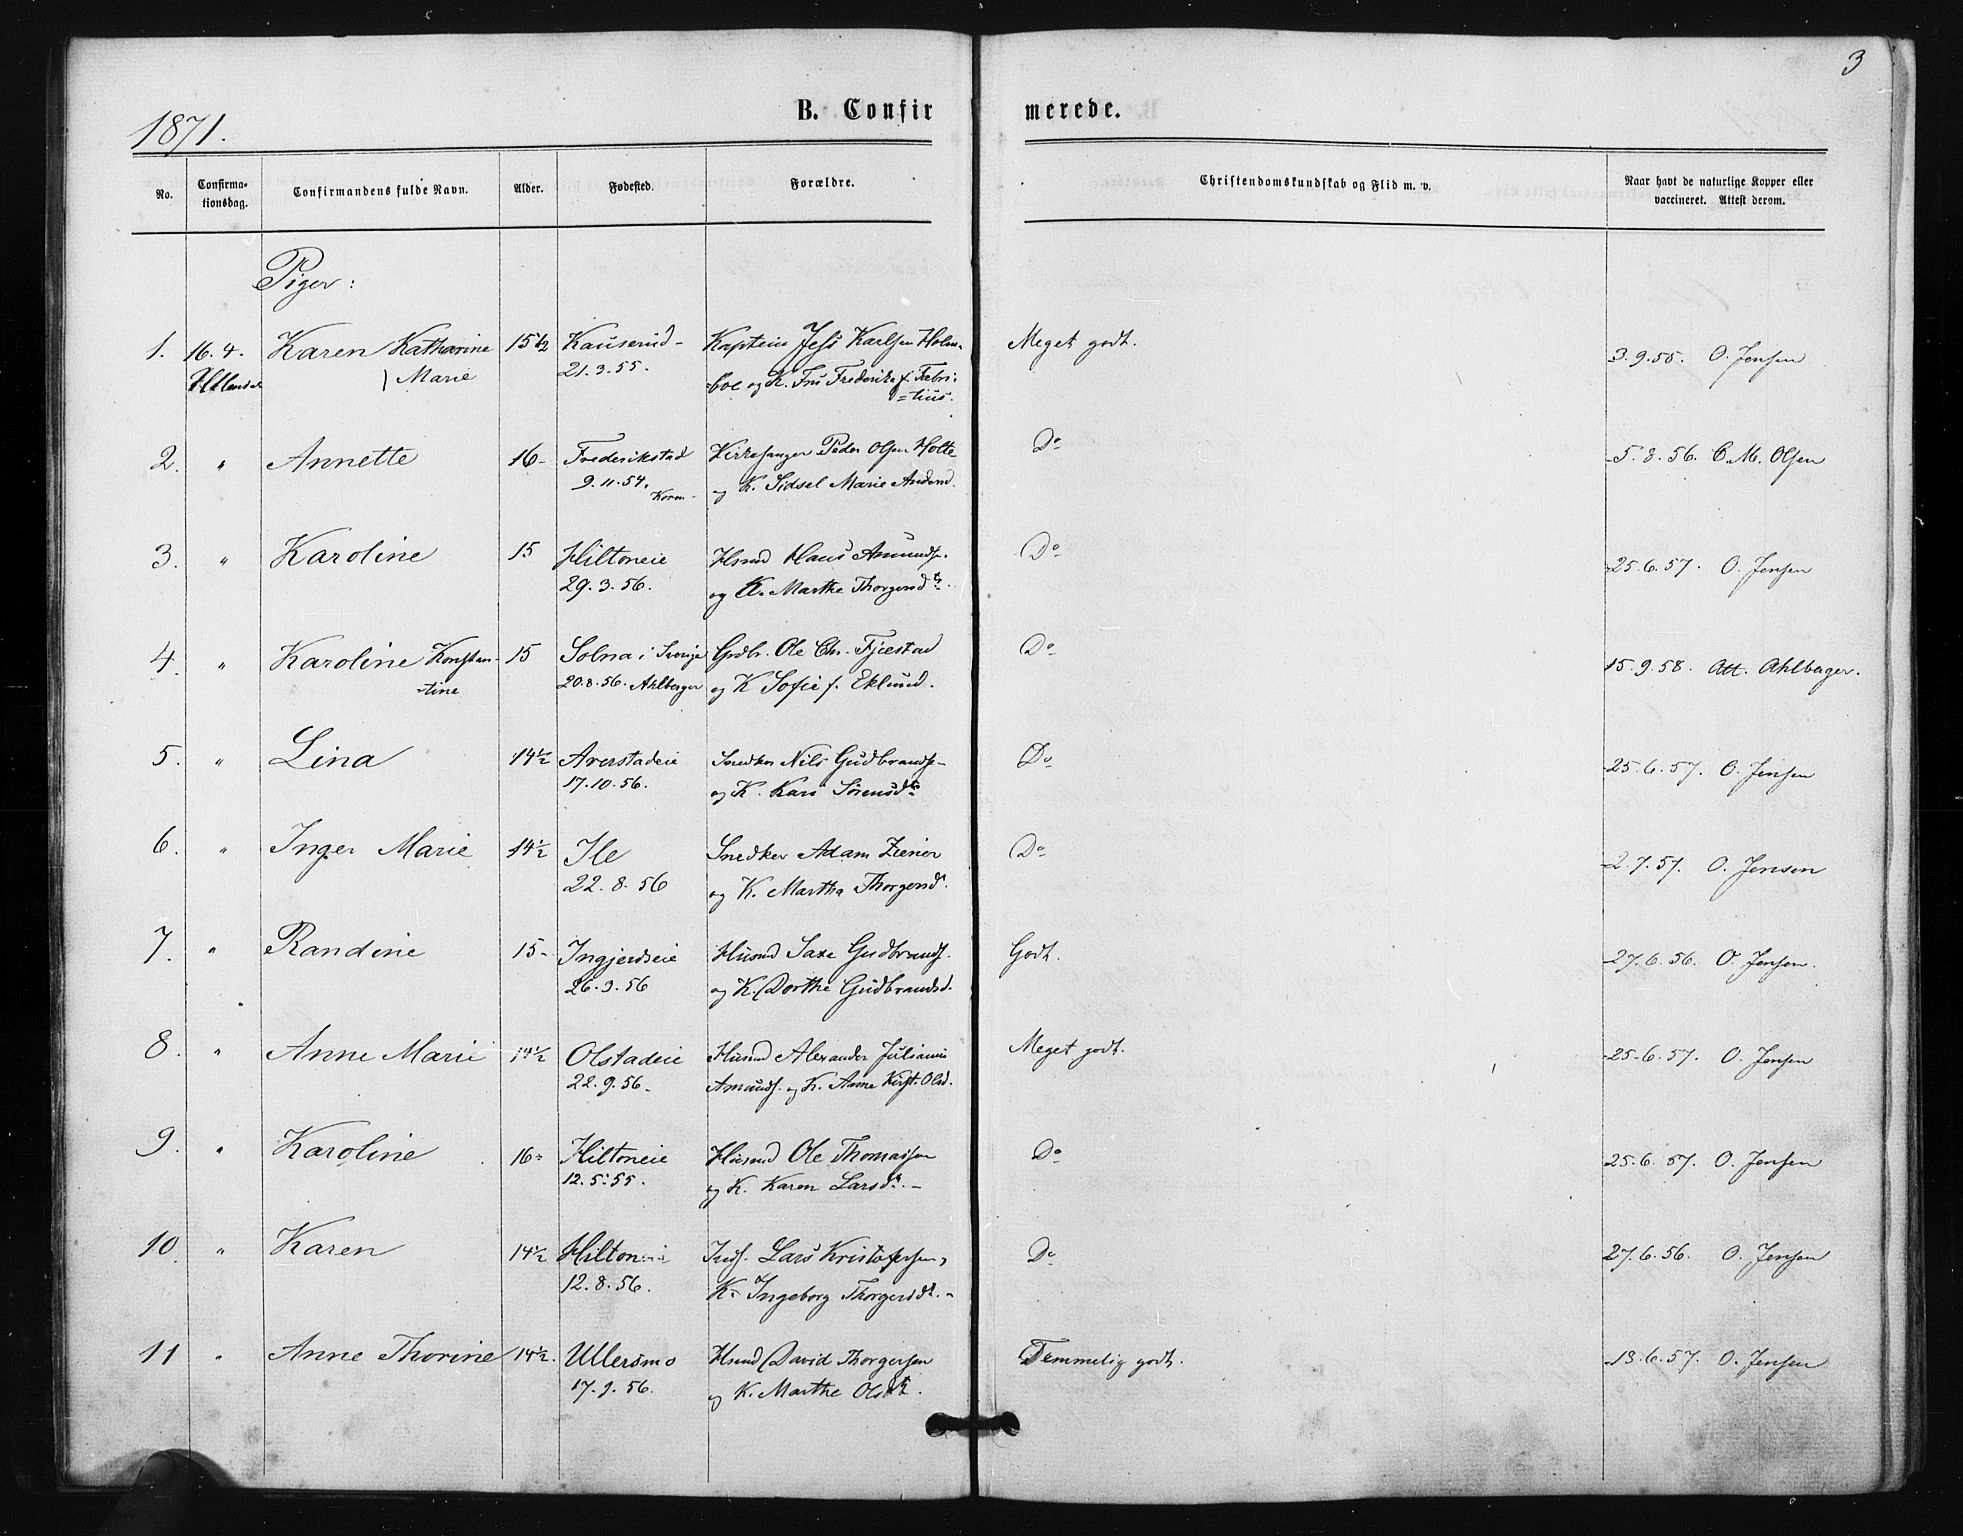 3
1871.
B. Confirmerede.
No. Confirmationsdag. Confirmandens fulde Navn. Alder. Fødested. Forældre. Christendomskundskab og Flid m. v. Naar havt de naturlige Kopper eller vaccineret. Attest derom.
Piger:
1. 16.4. Karen Katharine 15 1/2 Kauserud- Kaptein Jess Karlsen Holm- Meget godt. 3.9.55. O. Jensen
Marie 21.3.55. =boe og K. Fru Frederike f. Fabri-
=tius.
2. " Annette 16- Frederikstad Kirkesanger Peder Olsen Holte Do 5.8.56. C. M. Olsen
9.11.54. og K. Sidsel Marie Andersd.
3. " Karoline 15 Hiltoneie Hsmd Hans Amunds. Do 25.6.57. O. Jensen
29.3.56. og K. Marthe Thorgersdtr.
4. " Karoline Konstan- 15 Solna i Sverige Grdbr. Ole Chr. Fjestad Do 15.9.58. Att. Ahlberger.
-tine 20.8.56. Ahlberger og K Sofie f. Eklund.
5. " Lina 14 1/2 Arerstadeie Snedker Nils Gudbrands- Do 25.6.57. O. Jensen
17.10.56. og K. Kari Sörensdtr
6. " Inger Marie 14 1/2 Ile Snedker Adam Ziener Do 2.7.57. O. Jensen
22.8.56 og K. Martha Thorgersdr.
7. " Randine 15- Ingjerdseie Husmd Saxe Gudbrands. Godt. 27.6.56. O. Jensen.
26.3.56 og K. Dorthe Gudbrandsd.
8. " Anne Marie 14 1/2 Olstadeie Husmd Alexander Julianus Meget godt. 25.6.57. O. Jensen
22.9.56. Amunds. og K. Anne Kirst. Olsd.
9. " Karoline 16- Hiltoneie Husmd Ole Thomassen Do 25.6.57. O. Jensen
12.5.55. og K. Karen Larsdr.-
10. " Karen 14 1/2 Hiltoneie Inds. Lars Kristofersen, Do 27.6.56. O. Jensen
12.8.56. K. Ingeborg Thorgersdr.-
11 " Anne Thorine 14 1/2. Ullersmo Hsmd David Thorgersen Temmelig godt. 13.6.57. O. Jensen
17.9.56. og K. Marthe Olsdtr.